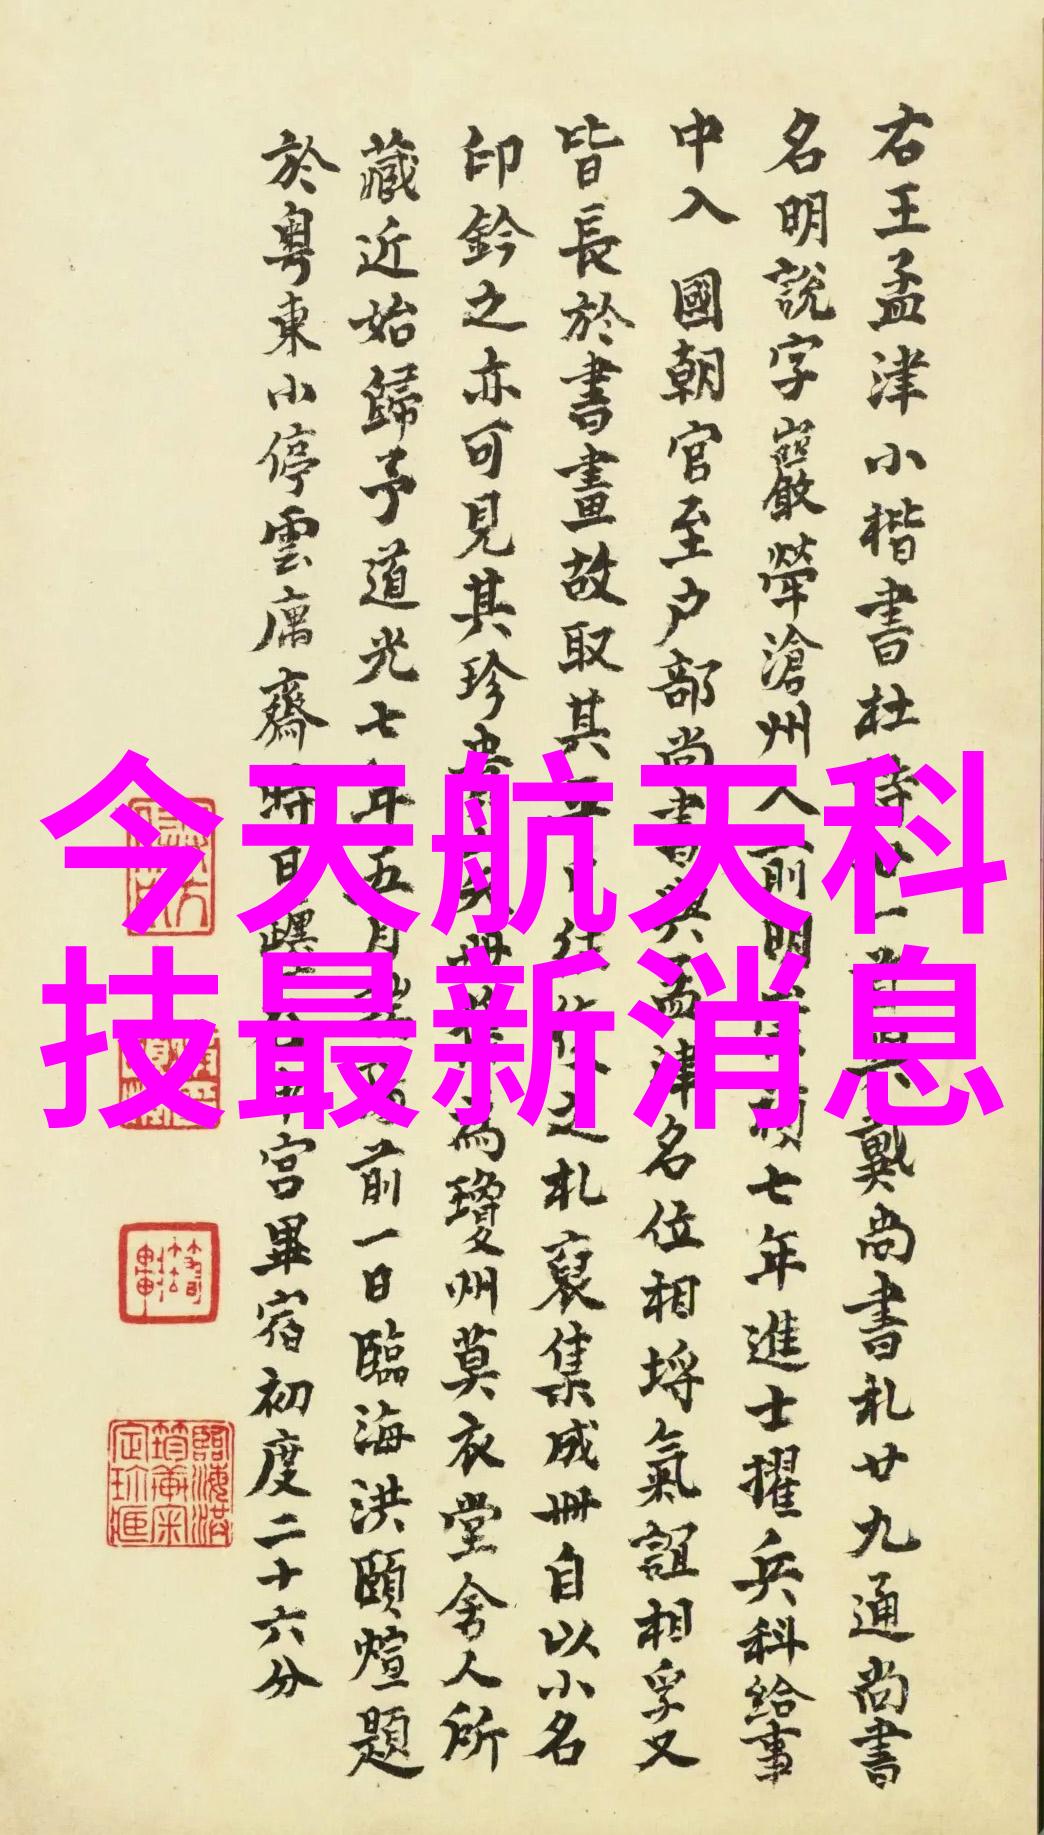 右王孟津小楷書杜詩一戴尚書札廿九通尚書
名明說字巖犖滄州人前明七年進士擢兵科給事
中入國朝官至户部尚書與孟津名位相埒氣誼相孚又
皆長於書畫故取其之札裒集成冊自以小名
印鈐之亦可見其珍為瓊州莫衣堂舍人所
藏近始歸予道光七年五月前一日臨海洪頤煊題
於粵東小停雲庽齋時日躔宮畢宿初度二十六分
今天航天科
技最新消息